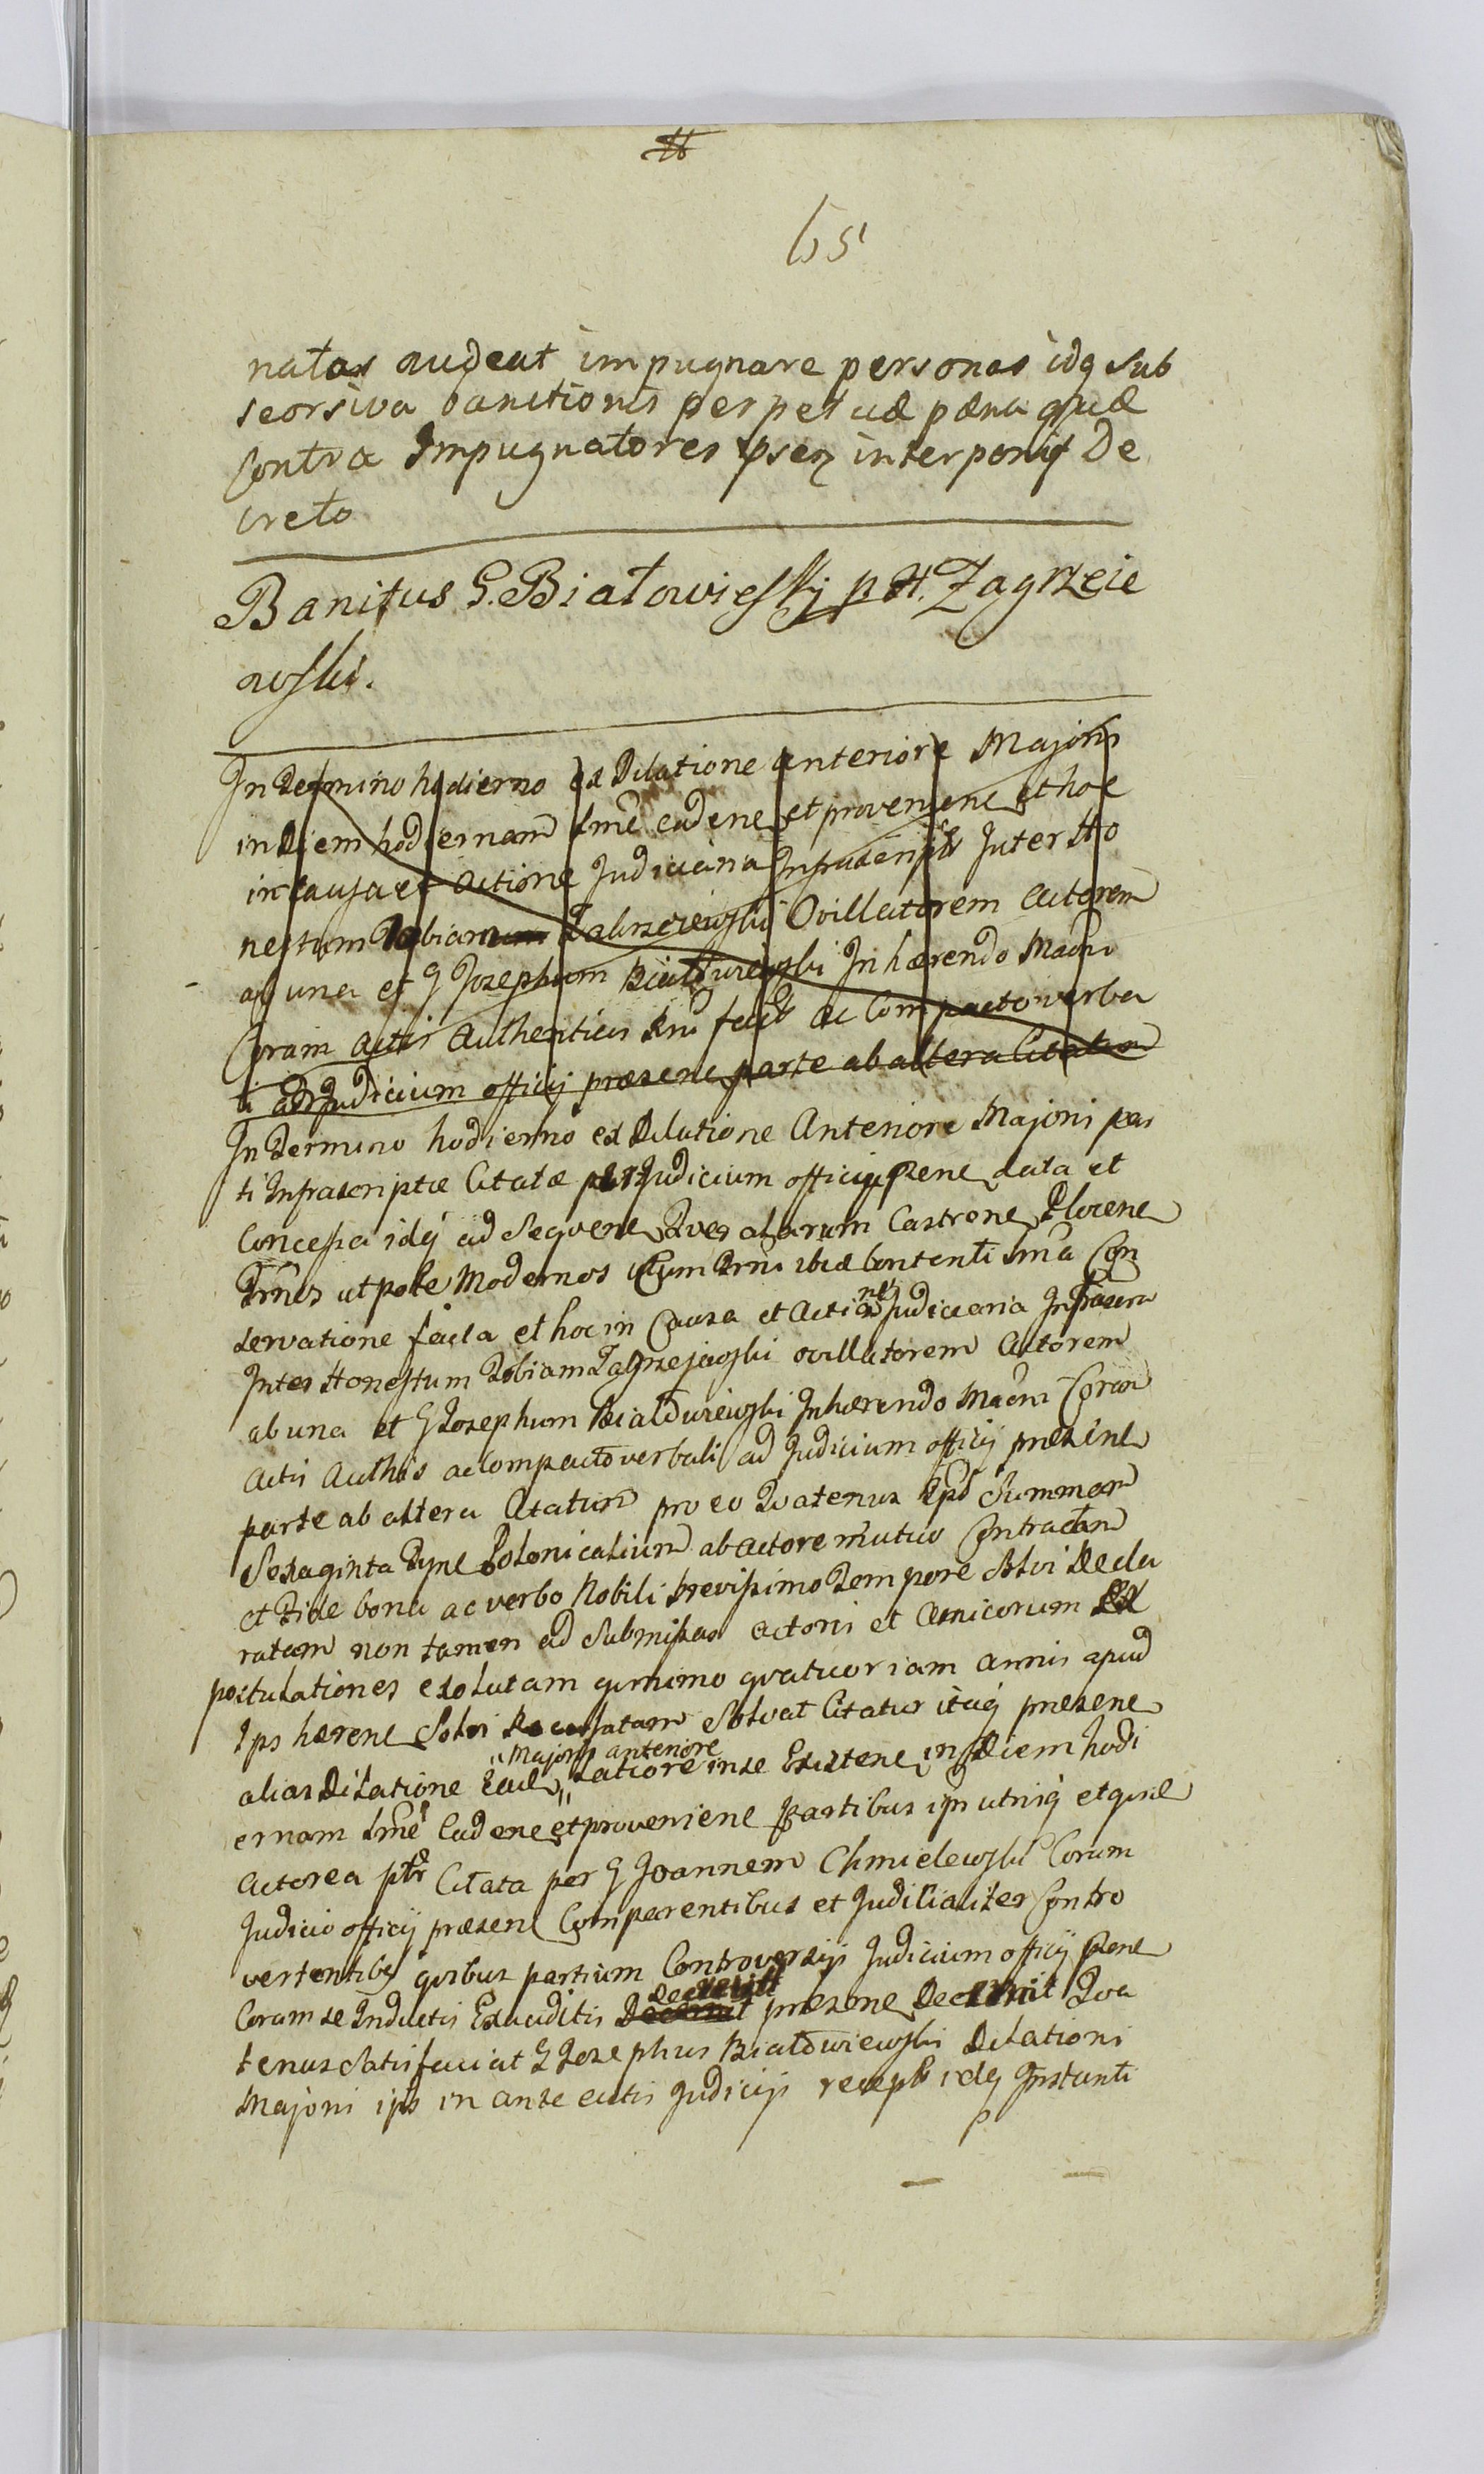 65
natas audeat impugnare personas idq sub
seorsiva banitionis perpetuæ pæna quæ
contra Impugnatores psen interponit De
creto
Banitus G. Białowieski p H. Zagrzeie
wski.
In Termino hodierno ex Dilatione anteriore Majoris
in Diem hodiernam Sme cadene et proveniene et hoc
in causa et actione Judiciaria Infrascripta Inter Ho
nestum Tobiam Zabrzeiewski Ovillatorem Actorem
ab una et G Josephum Białowiewski Inhærendo
Coram actis Authenticis facta ac Compacto verba
li ad Judicium officij præsene parte ab altera Citatum
In Termino hodierno ex Dilatione Anteriore Majori par
ti Infrascriptæ Citatæ per Judicium officij psene data et
Concessa idq ad Seqvene Qver alarum Castrene Plocene
Trnos utpote Modernos cum Trni ibid contenti sma Con
servatione facta et hoc in Causa et actione Judiciaria Infrascri
Inter Honestum Tobiam Zagrzejewski ovillatorem Actorem
ab una et G Josephum Białowiewski Inhærendo Coram
actis Authis ac Compacto verbali ad Judicium officij præsene
parte ab altera Citatum pro eo Qvatenus Ips Summam
Sexaginta Tyne Polonicalium ab actore mutuo Contractam
et Fide bona ac verbo Nobili brevissimo Tempore Solvi Decla
ratam non tamen ad Submissas actoris et amicorum
postulationes exolutam qvinimo qvatuor iam annis apud
Ips hærene Solvi Recusatam Solvat Citatus itaq præsene
alias Dilatione Majoris anteriore Latiore inse Existene in Diem hodi
ernam Sme Cadene et proveniene Partibus ipis utriq et
Actorea ptr Citata per G Joannem Chmielewski Coram
Judicio officij præsene Comparentibus et Judicialiter Contro
vertentibq qvibus partium Controversijs Judicium officij psene
Coram se Inductis Exauditis Decrevit præsene Decernit Qva
tenus Satisfaciat G Josephus Białowiewski Dilationi
Majori ips in ante actis Judicijs recept idq Instanti